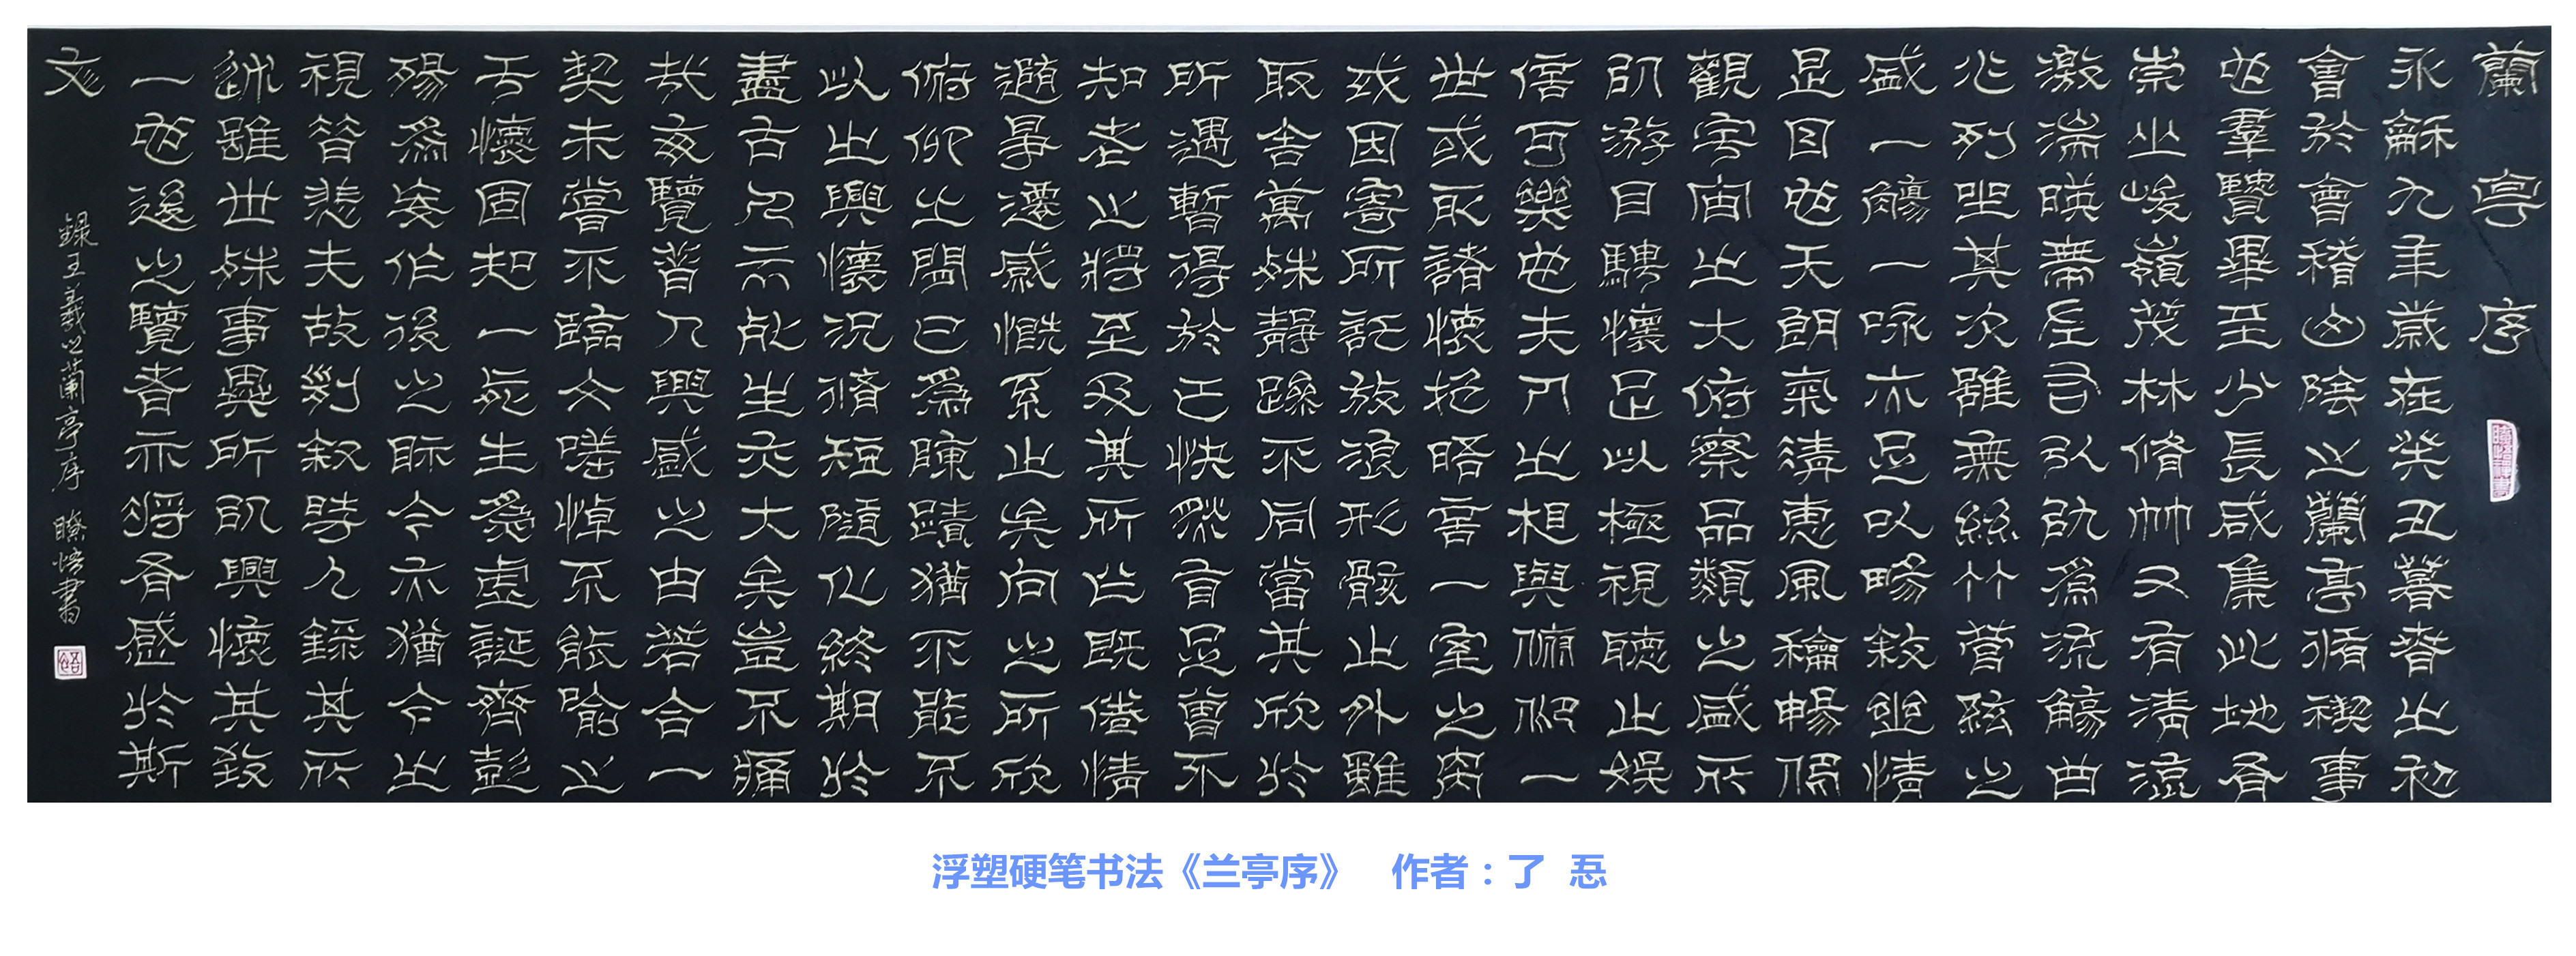 蘭亭序
永龢九年歲在癸丑暮春之初
會於會稽山陰之蘭亭脩禊事
也羣賢畢至少長咸集此地有
崇山峻嶺茂林脩竹又有清流
激湍暎帶左右引以爲流觴曲
水列坐其次雖無絲竹管弦之
盛一觴一咏亦足以暢敘幽情
是日也天朗氣清惠風龢暢仰
觀宇宙之大俯察品類之盛所
以游目騁懷足以極視聽之娛
信可樂也夫人之相與俯仰一
世或取諸懷抱晤言一室之內
或因寄所託放浪形骸之外雖
取舍萬殊靜躁不同當其欣於
所遇暫得於己快然自足曾不
知老之將至及其所之既倦情
隨事遷感慨系之矣向之所欣
俯仰之間已爲陳蹟猶不能不
以之興懷況脩短隨化終期於
盡古人云死生亦大矣豈不痛
哉每覽昔人興感之由若合一
契未嘗不臨文嗟悼不能喻之
于懷固知一死生爲虛誕齊彭
殤爲妄作後之眎今亦猶今之
視昔悲夫故列叙時人錄其所
述雖世殊事異所以興懷其致
一也後之覽者亦將有感於斯
文
録王羲之蘭亭序 瞭悟書
浮塑硬笔书法《兰亭序》 作者：了 忢